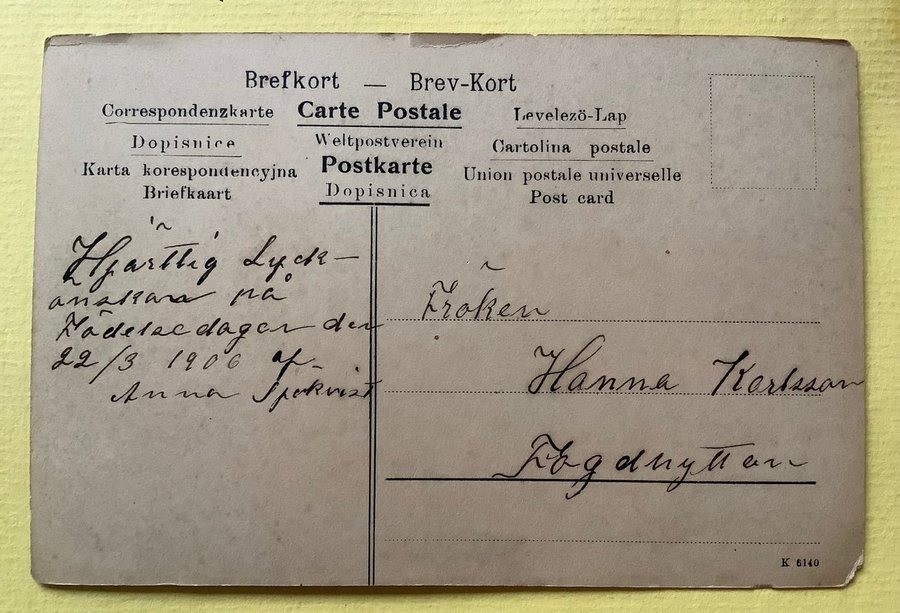 Brefkort — Brev-Kort
Correspondenzkarte Carte Postale Levelezö-Lap
Dopisnice Weltpostverein Cartolina postale
Karta korespondencyjna Postkarte Union postale universelle
Briefkaart Dopisnica Post card
Hjärttlig Lyck-
önskan på
Födelsedagen den
22/3 1906 af
Anna
Fröken
Hanna Karlsson
Fogdhyttan
K 6140